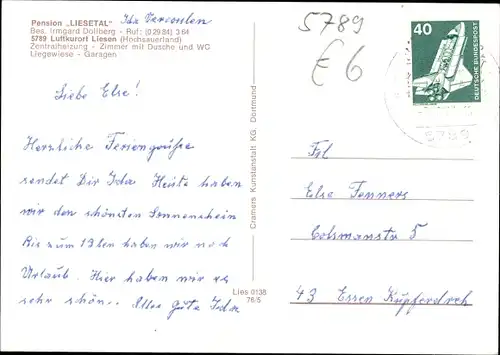 Pension „LIESETAL"
Bes. Irmgard Dollberg - Ruf: (0 29 84) 3 64
5789 Luftkurort Liesen (Hochsauerland)
Zentralheizung - Zimmer mit Dusche und WC
Liegewiese - Garagen
Ida
Liebe Else!
Herzliche Feriengrüße
sendet Dir Ida Heute haben
wir den schönsten Sonnenschein
Bis zum 19ten haben wir noch
Urlaub. Hier haben wir es
sehr schön. Alles Gute Ida
Cramers Kunstanstalt KG, Dortmund
Lies 0138
76/5
5789
E 6
40
DEUTSCHE BUNDESPOST
5789
Frl
Else
5
43 Essen Kupferdreh